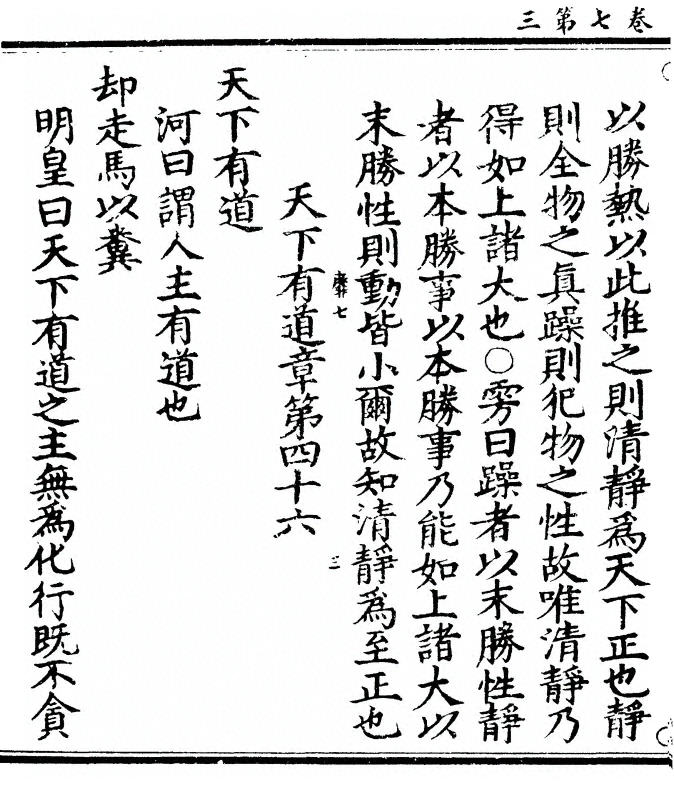 卷七第三
以勝熱以此推之則清靜爲天下正也靜
則全物之眞躁則犯物之性故唯清靜乃
得如上諸大也○雱曰躁者以末勝性靜
者以本勝事以本勝事乃能如上諸大以
末勝性則動皆小爾故知清靜爲至正也
靡七 三
天下有道章第四十六
天下有道
河曰謂人主有道也
却走馬以糞
明皇曰天下有道之主無爲化行既不貪